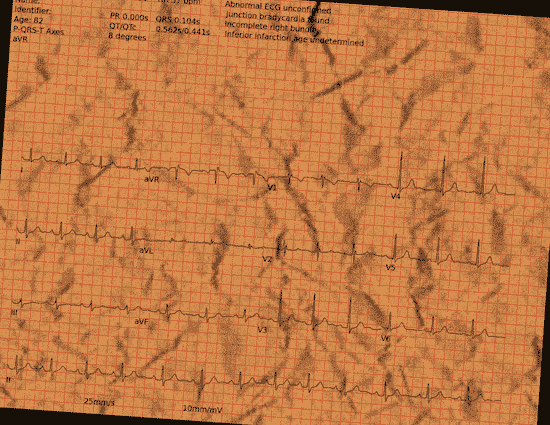 Name:
Identifier:
Age: 82
P-QRS-T Axes
aVR
PR 0.000s QRS 0.104s
QT/QTc 0.562s/0.441s
8 degrees
Abnormal ECG unconfirmed
Junction bradycardia found
Incomplete right bundle
Inferior infarction age undetermined
I aVR V1 V4
II aVL V2 V5
III aVF V3 V6
II
25mm/s 10mm/mV